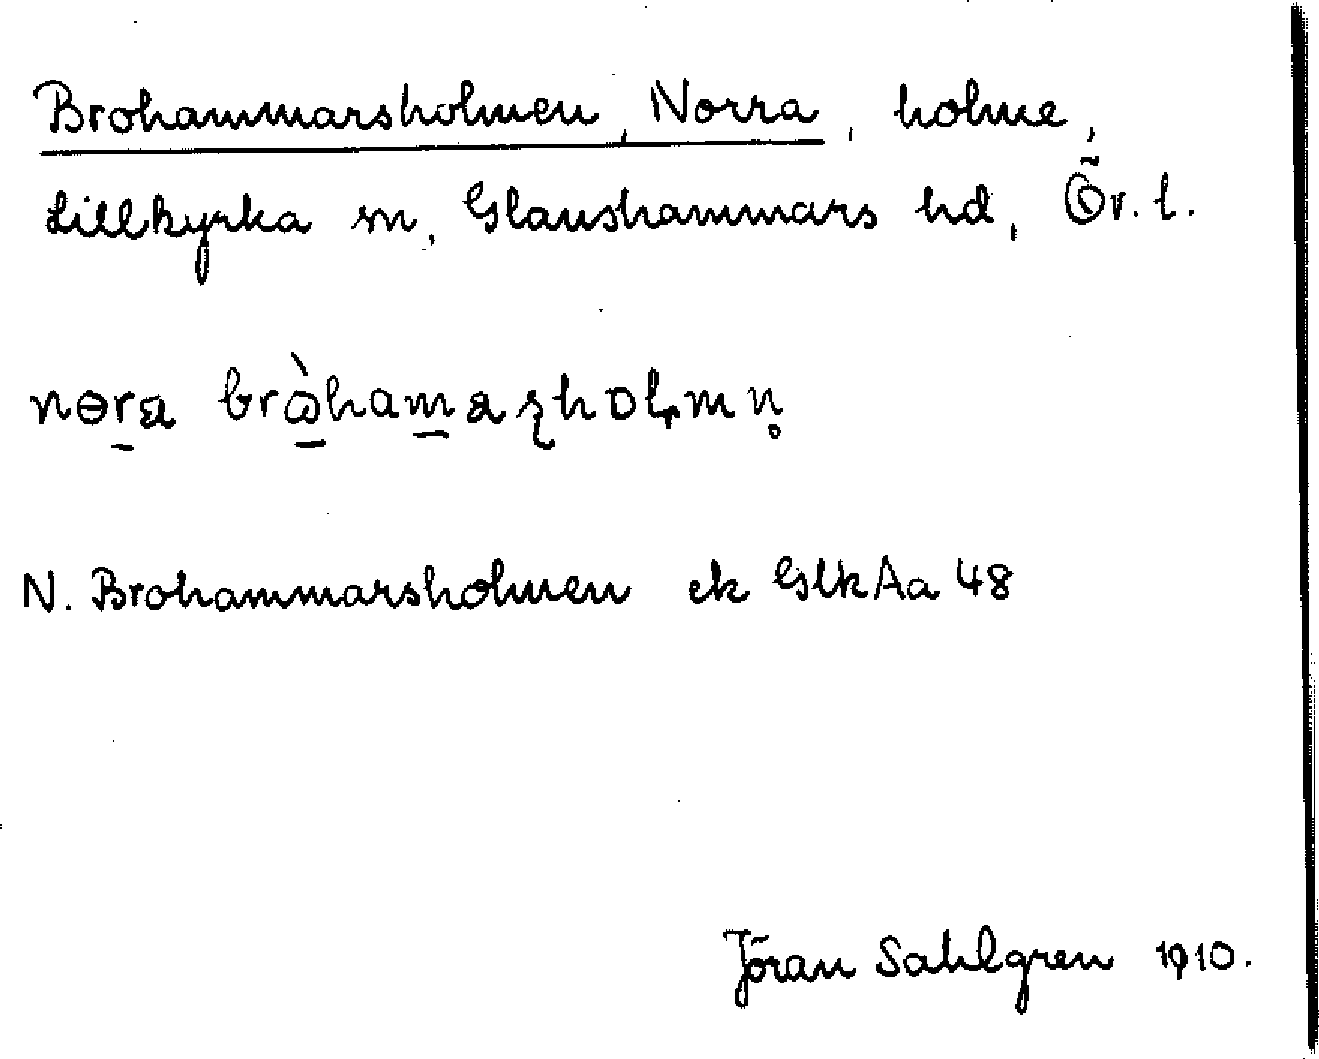 Brohammarsholmen, Norra, holme,
Lillkyrka sn, Glanshammars hd, Ör. l.
nɵra brὰhamaʂhoɭmn̥
N. Brohammarsholmen ek GlkAa 48
Jöran Sahlgren 1910.